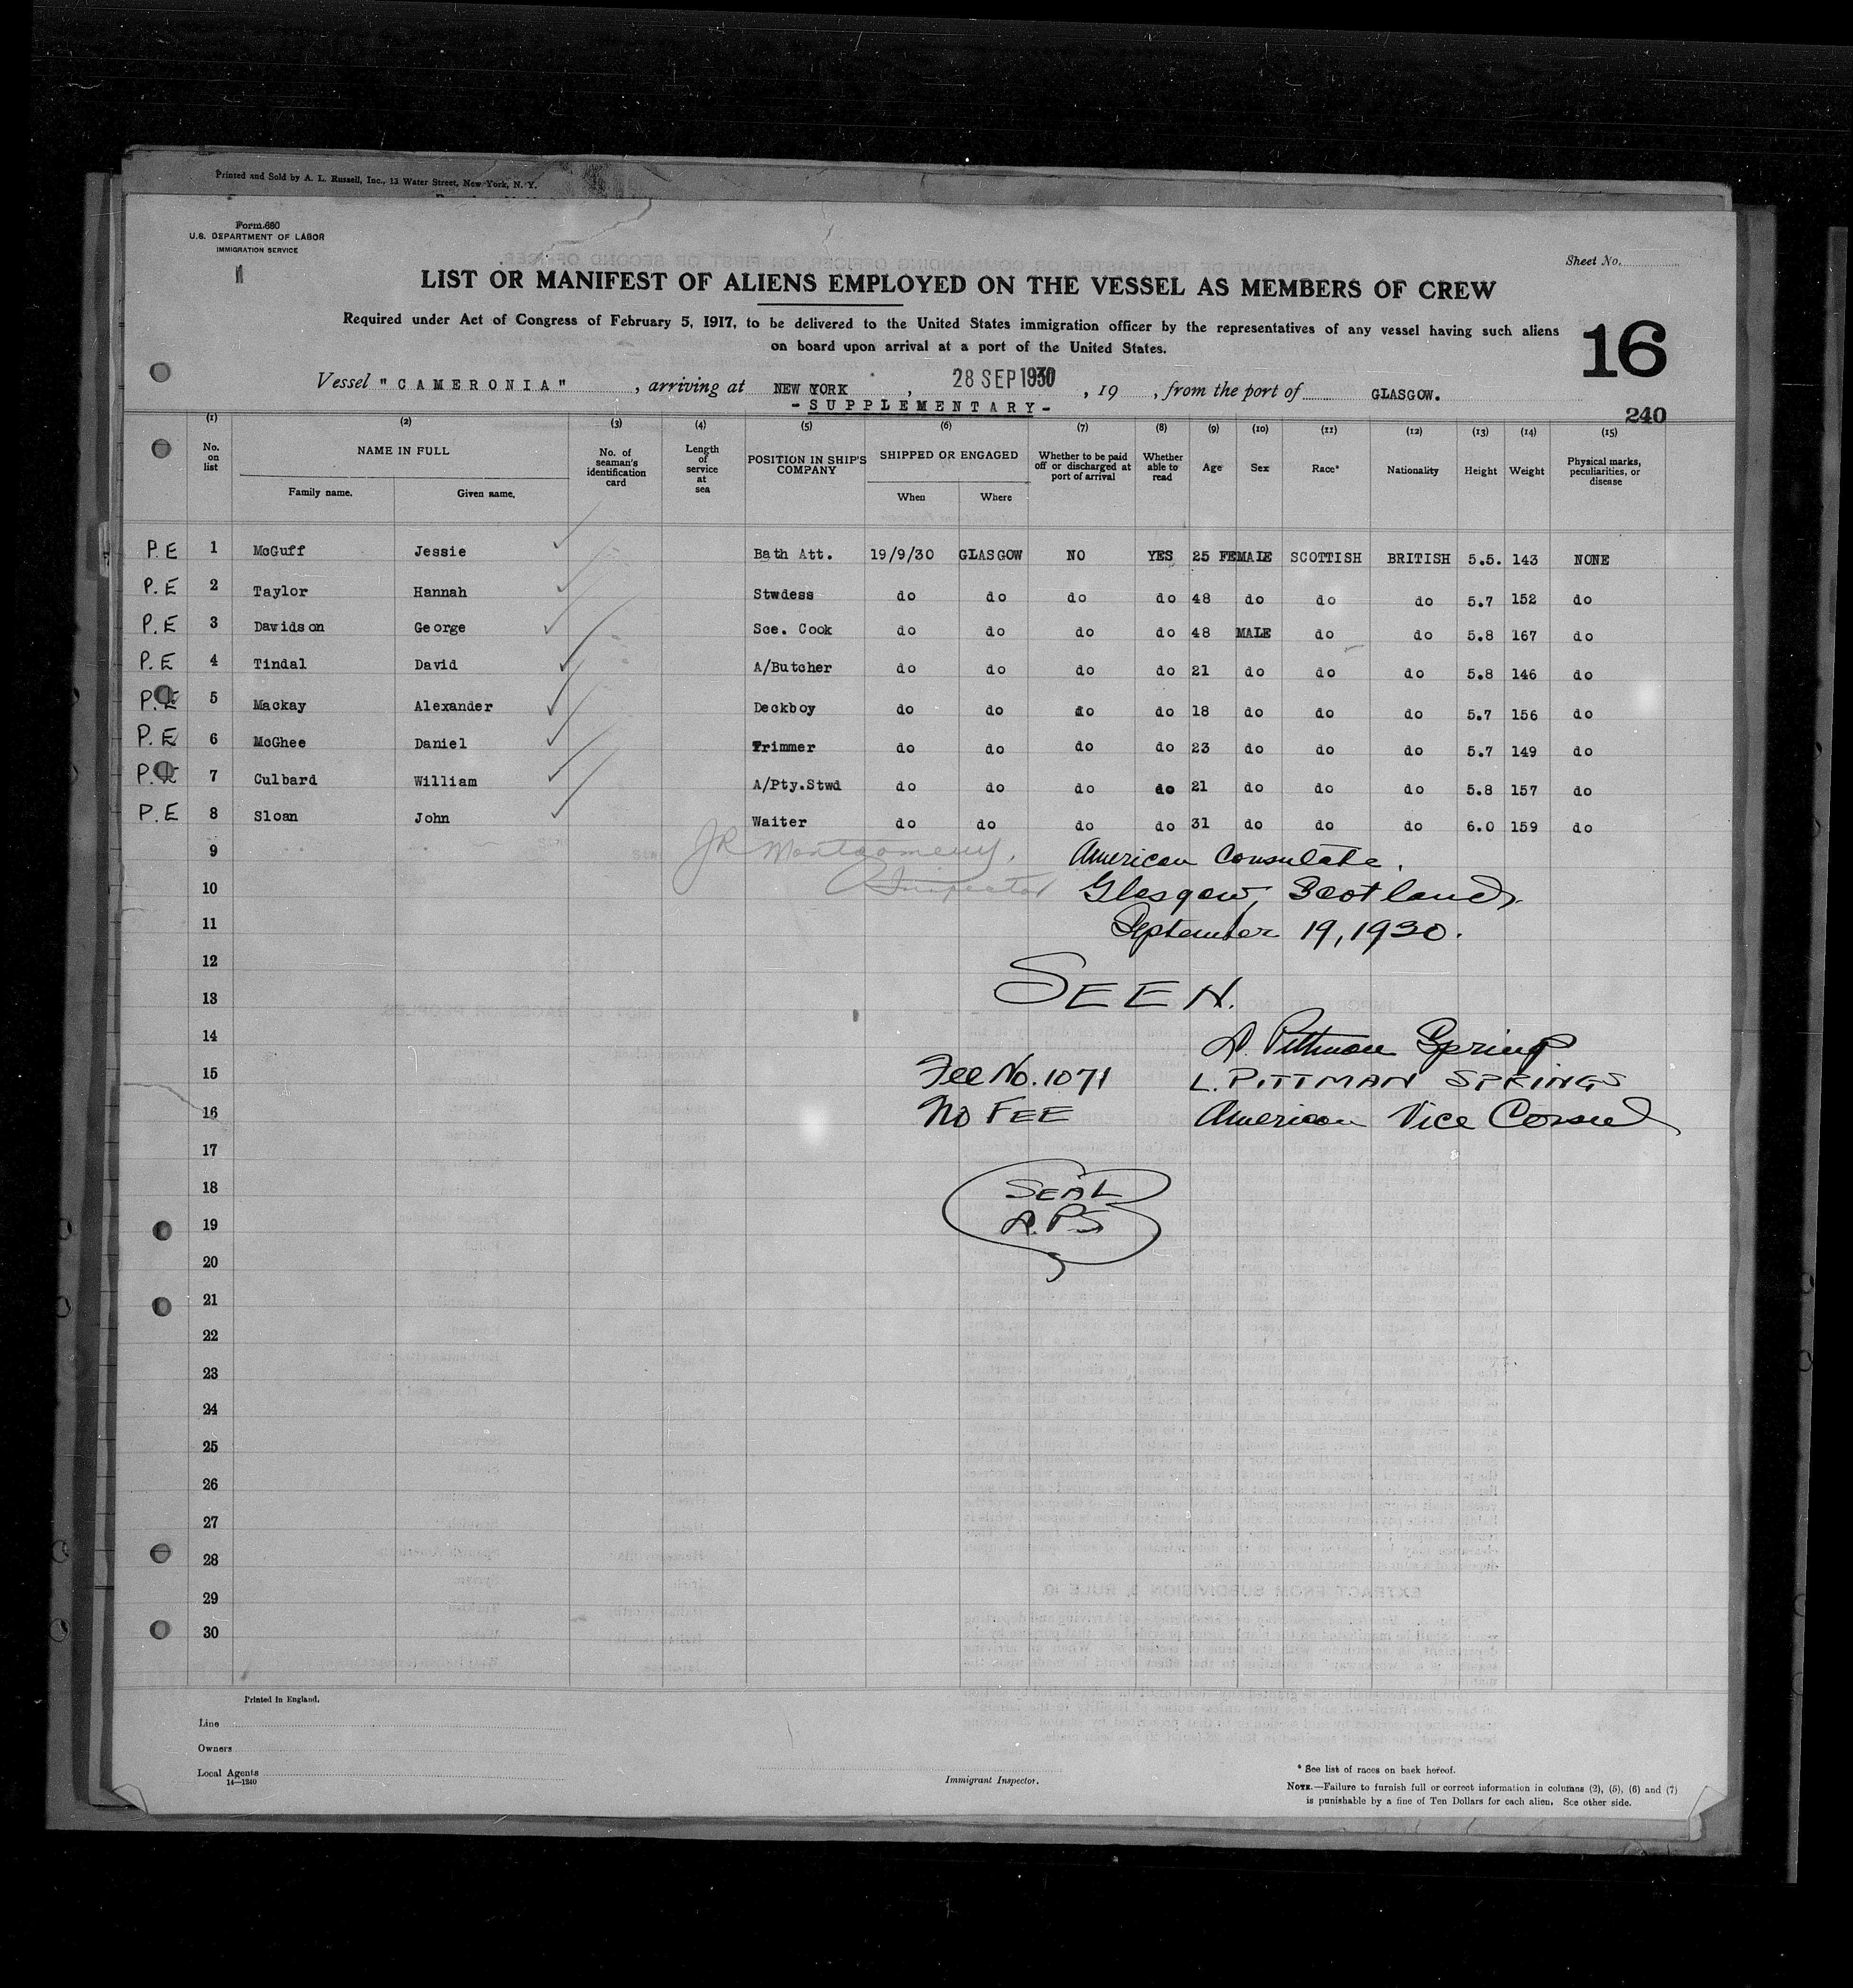 Printed and Sold by A. L. Russell, Inc., 13 Water Street, New York, N. Y.
Form 680
U.S. DEPARTMENT OF LABOR
IMMIGRATION SERVICE
Sheet No.
LIST OR MANIFEST OF ALIENS EMPLOYED ON THE VESSEL AS MEMBERS OF CREW
Required under Act of Congress of February 5, 1917, to be delivered to the United States immigration officer by the representatives of any vessel having such aliens
on board upon arrival at a port of the United States.
16
Vessel "CAMERONIA", arriving at NEW YORK, 28 SEP 1930, 19 , from the port of GLASGOW.
-SUPPLEMENTARY-
240
(1) (2) (3) (4) (5) (6) (7) (8) (9) (10) (11) (12) (13) (14) (15)
No. on list NAME IN FULL No. of seaman's identification card Length of service at sea POSITION IN SHIP'S COMPANY SHIPPED OR ENGAGED Whether to be paid off or discharged at port of arrival Whether able to read Age Sex Race* Nationality Height Weight Physical marks, peculiarities, or disease
Family name. Given name. When Where
P.E 1 McGuff Jessie Bath Att. 19/9/30 GLASGOW NO YES 25 FEMALE SCOTTISH BRITISH 5.5. 143 NONE
P.E 2 Taylor Hannah Stwdess do do do do 48 do do do 5.7 152 do
P.E 3 Davidson George Sce. Cook do do do do 48 MALE do do 5.8 167 do
P.E 4 Tindal David A/Butcher do do do do 21 do do do 5.8 146 do
P.E 5 Mackay Alexander Deckboy do do do do 18 do do do 5.7 156 do
P.E 6 McGhee Daniel Trimmer do do do do 23 do do do 5.7 149 do
P.E 7 Culbard William A/Pty.Stwd do do do do 21 do do do 5.8 157 do
P.E 8 Sloan John Waiter do do do do 31 do do do 6.0 159 do
9 JR Montgomery, American Consulate,
10 Inspector Glasgow, Scotland,
11 September 19, 1930.
12
13 SEEN.
14 L. Pittman Springs
15 Fee No. 1071 L. PITTMAN SPRINGS
16 No FEE American Vice Consul
17
18 SEAL
19 L.P.S
20
21
22
23
24
25
26
27
28
29
30
Printed in England.
Line
Owners
Local Agents
14—1240
Immigrant Inspector.
* See list of races on back hereof.
NOTE.—Failure to furnish full or correct information in columns (2), (5), (6) and (7)
is punishable by a fine of Ten Dollars for each alien. See other side.